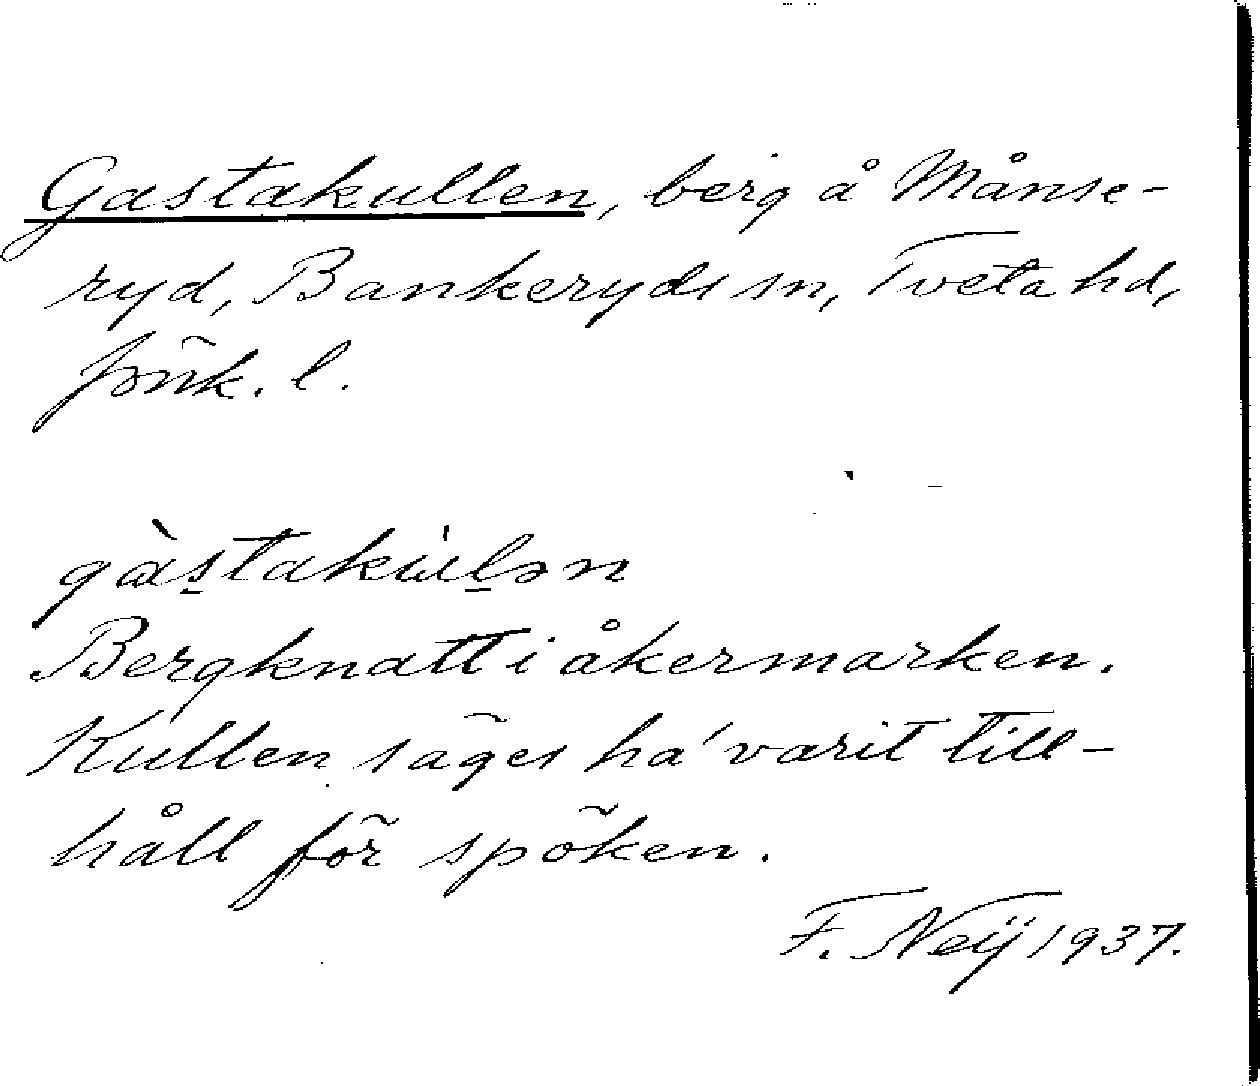 Gastakullen, berg å Månse-
ryd, Bankeryds sn, Tveta hd,
Jönk. l.
gàs̠takùl̠ən
Bergknatt i åkermarken.
Kullen säges ha' varit till-
håll för spöken.
F. Neij 1937.